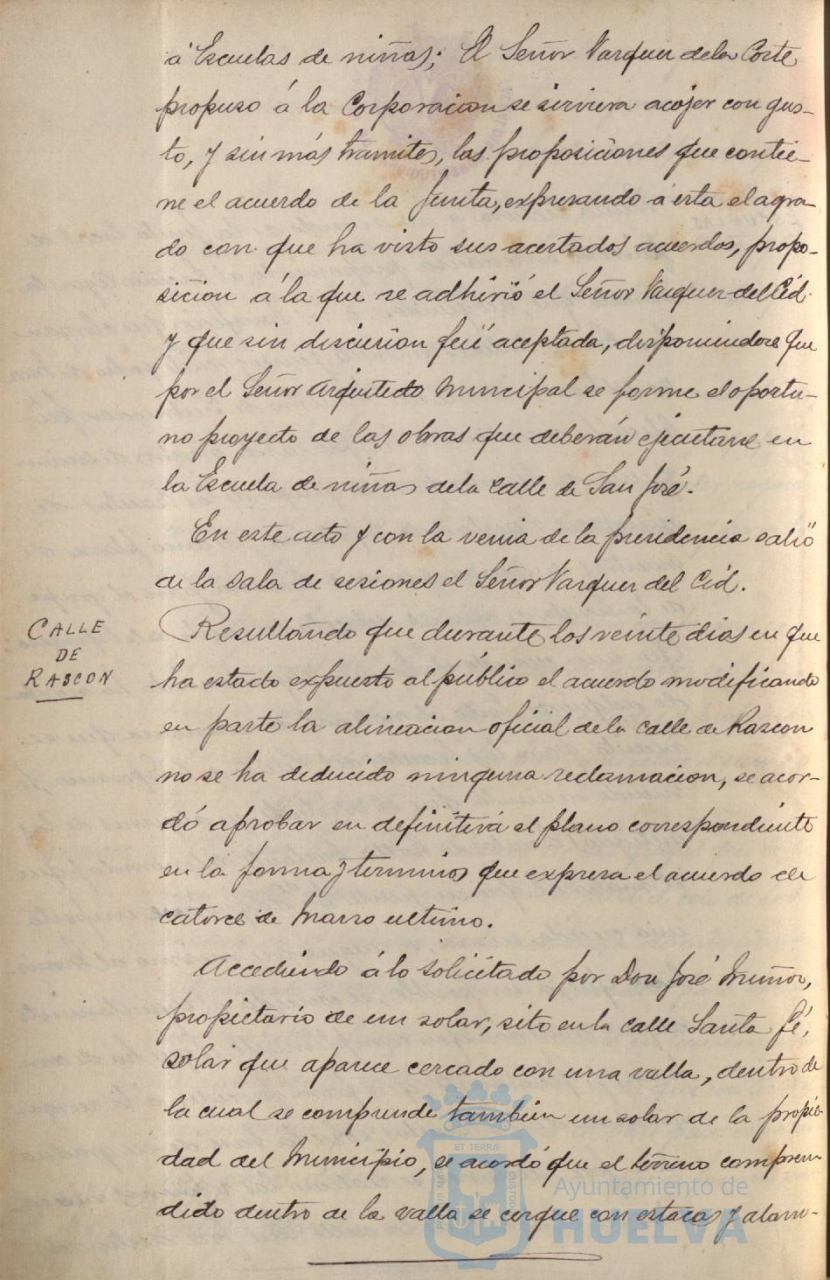 á Escuelas de niñas; El Señor Vazquez de la Corte
propuso á la Corporacion se sirviera acojer con gus-
to, y sin más tramites, las proposiciones que contie-
ne el acuerdo de la Junta, expresando á esta el agra-
do con que ha visto sus acertados acuerdos, propo-
sicion á la que se adhirió el Señor Vazquez del Cid
y que sin discusion fué aceptada, disponiendose que
por el Señor Arquitecto Municipal se forme el oportu-
no proyecto de las obras que deberán ejecutarse en
la Escuela de niñas de la calle de San José.
En este acto y con la venia de la presidencia salió
de la sala de sesiones el Señor Vazquez del Cid.
CALLE
DE
RASCON
Resultando que durante los veinte dias en que
ha estado expuesto al público el acuerdo modificando
en parte la alineacion oficial de la calle de Rascon
no se ha deducido ninguna reclamacion, se acor-
dó aprobar en definitiva el plano correspondiente
en la forma y terminos que expresa el acuerdo de
catorce de Marzo ultimo.
Accediendo á lo solicitado por Don José Muñoz,
propietario de un solar, sito en la calle Santa Fé,
solar que aparece cercado con una valla, dentro de
la cual se comprende tambien un solar de la propie-
dad del Municipio, se acordó que el terreno compren
dido dentro de la valla se cerque con estacas y alam-
ET TERRÆ
Ayuntamiento de
HUELVA